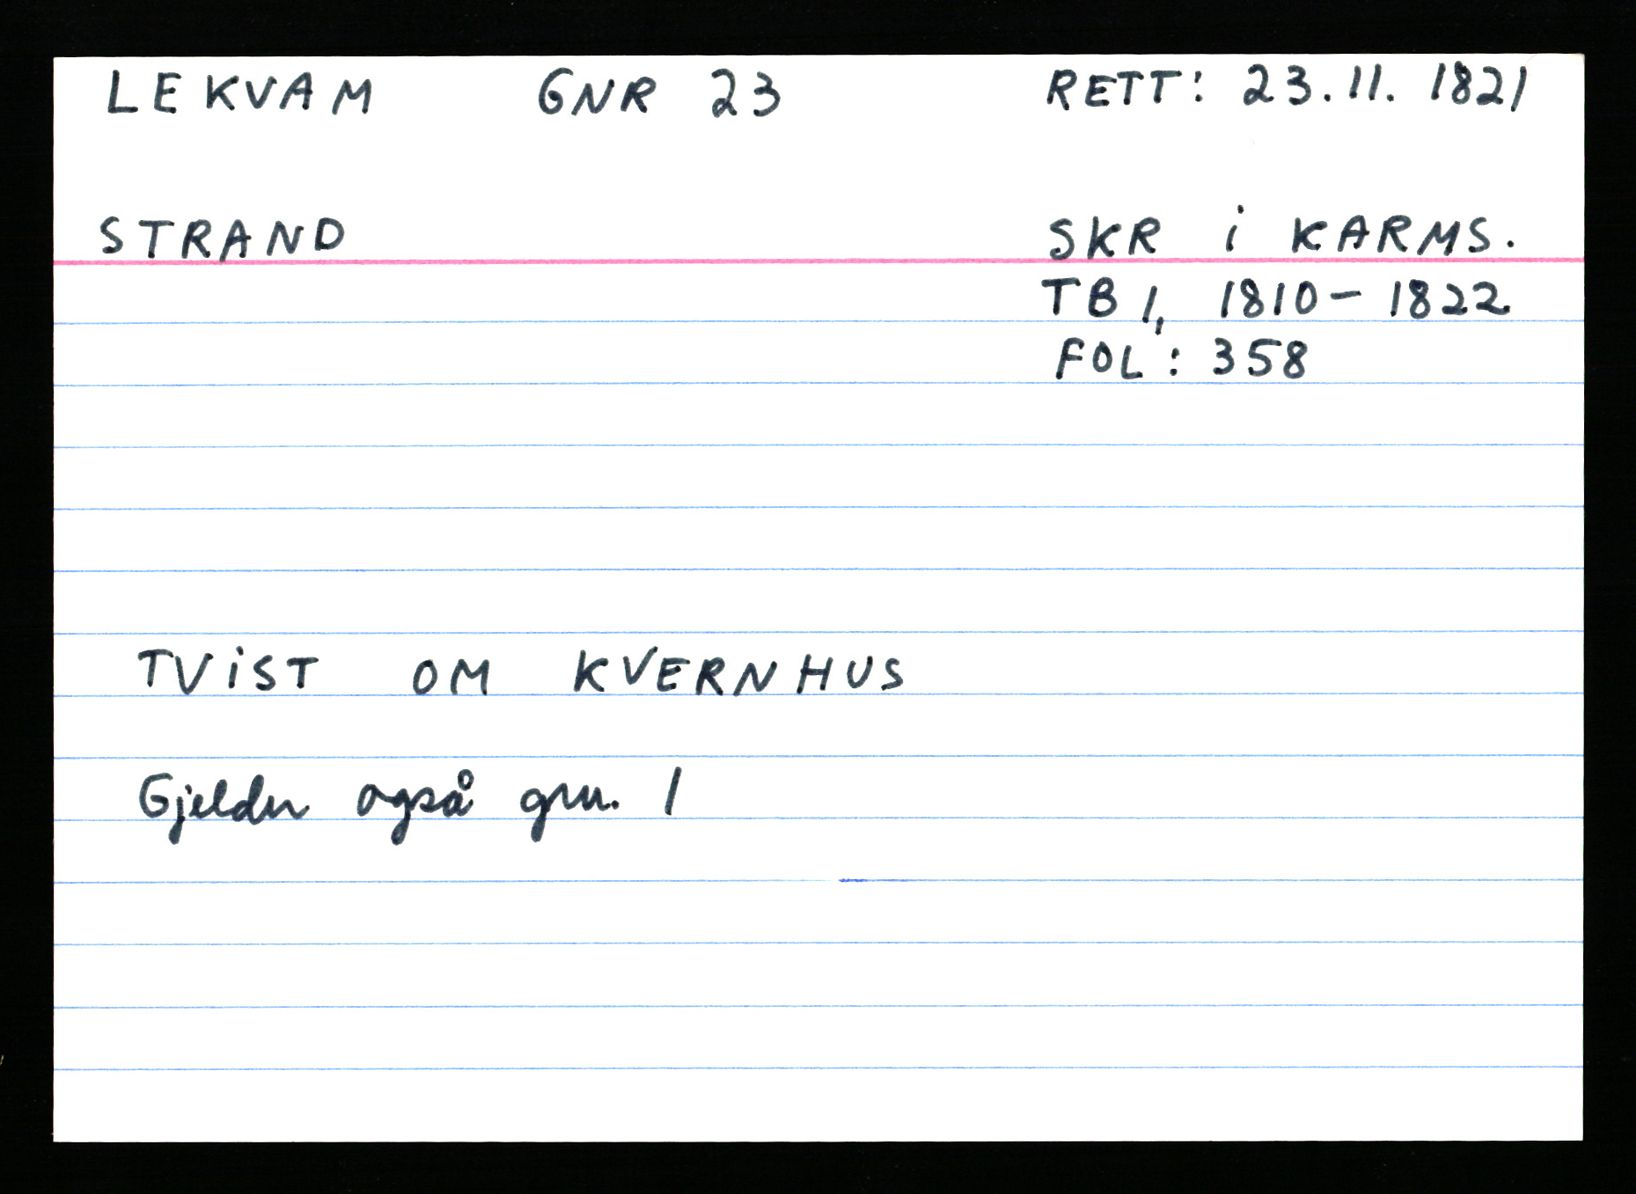 LEKVAM GNR 23 RETT: 23.11. 1821
STRAND SKR i KARMS.
TB 1, 1810-1822
FOL: 358
TVIST OM KVERNHUS
Gjelder også gnr. 1